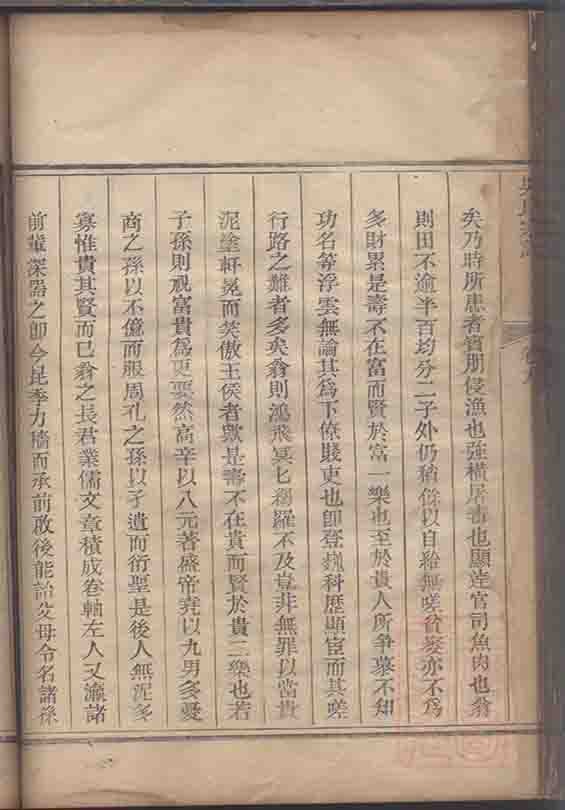 矣乃時所患者賓朋侵漁也強橫屠毒也顯達官司魚肉也翁
則田不逾半百均分二子外仍稍餘以自給無嗟貧婆亦不為
多財累是壽不在富而賢於富一樂也至於貴人所爭慕不知
功名等浮雲無論其為下僚賤吏也即登巍科歷顯宦而其嗟
行路之難者多矣翁則鴻飛冥匕網羅不及豈非無罪以當貴
泥塗軒冕而笑傲王侯者歟是壽不在貴而賢於貴二樂也若
子孫則視富貴為更要然高辛以八元著盛帝堯以九男多憂
商之孫以不億而服周孔之孫以孑遺而衍聖是後人無泥多
寡惟貴其賢而已翁之長君業儒文章積成卷軸左人又瀛諸
前輩深器之即今昆季力穡而承前啟後能詒父母令名諸孫